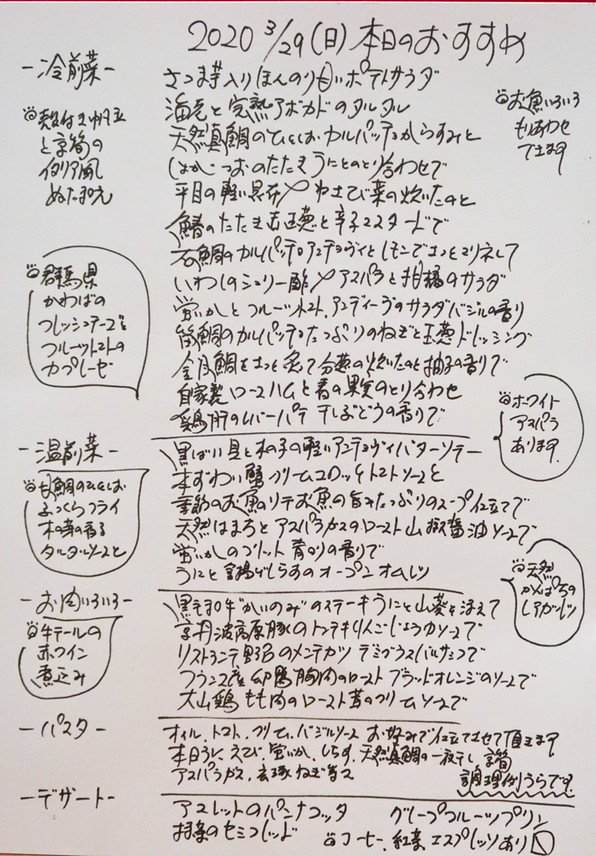 2020 3/29(日)本日のおすすめ
-冷前菜-
さつま芋入りほんのり甘いポテトサラダ
海老と完熟アボカドのタルタル
天然真鯛のひらしおカルパッチョからすみと
しょかつおのたたきうにとのとり合わせで
平目の軽い昆布〆わさび菜の炊いたのと
鰆のたたき玉葱と辛子マスタードで
石鯛のカルパッチョアンチョヴィとレモンでさっとマリネして
いわしのシェリー酢〆アスパラと柑橘のサラダ
蛍いかとフルーツトマト、アンディーブのサラダバジルの香り
筋鯛のカルパッチョたっぷりのねぎと玉葱ドレッシング
金目鯛をさっと炙って分葱の炊いたのと柚子の香りで
自家製ロースハムと春の果実のとり合わせ
鶏肝のレバーパテ干しぶどうの香りで
殻付き帆立
と京筍の
イタリア風
ぬた和え
群馬県
かわばの
フレッシュチーズと
フルーツトマトの
カプレーゼ
お魚いろいろ
もりあわせ
できます
ホワイト
アスパラ
あります
-温前菜-
黒ばい貝と木の子の軽いアンチョヴィバターソテー
本ずわい蟹クリームコロッケトマトソースと
季節のお魚のソテーお魚の旨みたっぷりのスープ仕立て
天然はまちとアスパラガスのロースト山椒醤油ソースで
蛍いかのフリット青のりの香りで
うにと釜揚げしらすのオープンオムレツ
甘鯛のひらしお
ふっくらフライ
木の芽の香る
タルタルソースと
天然
かんぱちの
レアカツレツ
-お肉いろいろ-
黒毛和牛"かいのみ"のステーキうにと山葵を添えて
京丹波高原豚のトンテキりんごじょうゆソースで
リストランテ野呂のメンチカツデミグラスバルサミコで
フランス産鴨胸肉のローストブラッドオレンジのソースで
大山鶏もも肉のロースト茸のクリームソースで
牛テールの
赤ワイン
煮込み
-パスタ-
オイル、トマト、クリーム、バジルソースお好みで仕立てさせて頂きます
本日うに、えび、蛍いか、しらす、天然真鯛の一夜干し、京筍
アスパラガス、九条ねぎ等々
調理例うらです。
-デザート-
アスレットのパンナコッタ
グレープフルーツプリン
抹茶のセミフレッド
コーヒー、紅茶エスプレッソあり